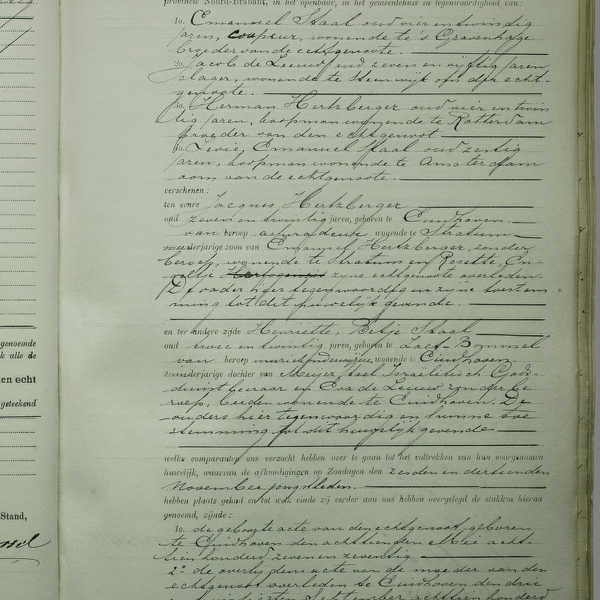 provincie Noord-Brabant, in het openbaar, in het gemeentehuis in tegenwoordigheid van:
1o. Emanuel Staal oud vier en twintig
jaren, coupeur, wonende te 's Gravenhage
broeder van de echtgenoote.
2o. Jacob de Leeuw, oud zeven en vijftig jaren,
slager, wonende te Steenwijk oom der echt-
genoote.
3o. Herman Hertzberger oud vier en twin
tig jaren, koopman wonende te Rotterdam
broeder van den echtgenoot
4o. Levie, Emanuel Staal oud zestig
jaren, koopman wonende te Amsterdam
oom van de echtgenoote.
verschenen:
ten eenre Jacques Hertzberger
oud zeven en twintig jaren, geboren te Eindhoven
van beroep wonende te Stratum
meerderjarige zoon van Emanuel Hertzberger, zonder
beroep, wonende te Stratum en Rosette, Em-
zijne echtgenoote overleden.
De vader hier tegenwoordig en zijne toestem-
ming tot dit huwelijk gevende.
en ter andere zijde Henriette, Betje Staal
oud twee en twintig jaren, geboren te Zalt-Bommel
van beroep muziekonderwijzeres, wonende te Eindhoven
minderjarige dochter van Meijer, Staal Israelitisch Gods-
dienstleeraar en Eva de Leeuw zonder be
roep, beiden wonende te Eindhoven. De
ouders hier tegenwoordig en hunne toe
stemming tot dit huwelijk gevende
welke comparanten ons verzocht hebben over te gaan tot het voltrekken van hun voorgenomen
huwelijk, waarvan de afkondigingen op Zondagen den zesden en dertienden
November jongstleden.
hebben plaats gehad en tot welk einde zij verder aan ons hebben overgelegd de stukken hierna
genoemd, zijnde:
1o. de geboorteacte van den echtgenoot, geboren
te Eindhoven den achttienden Mei acht-
tien honderd zeven en zeventig.
2o. de overlijdensacte van de moeder van den
echtgenoot overleden te Eindhoven den drie
September achttien honderd
genoemde
alle de
en echt
geteekend
Stand,